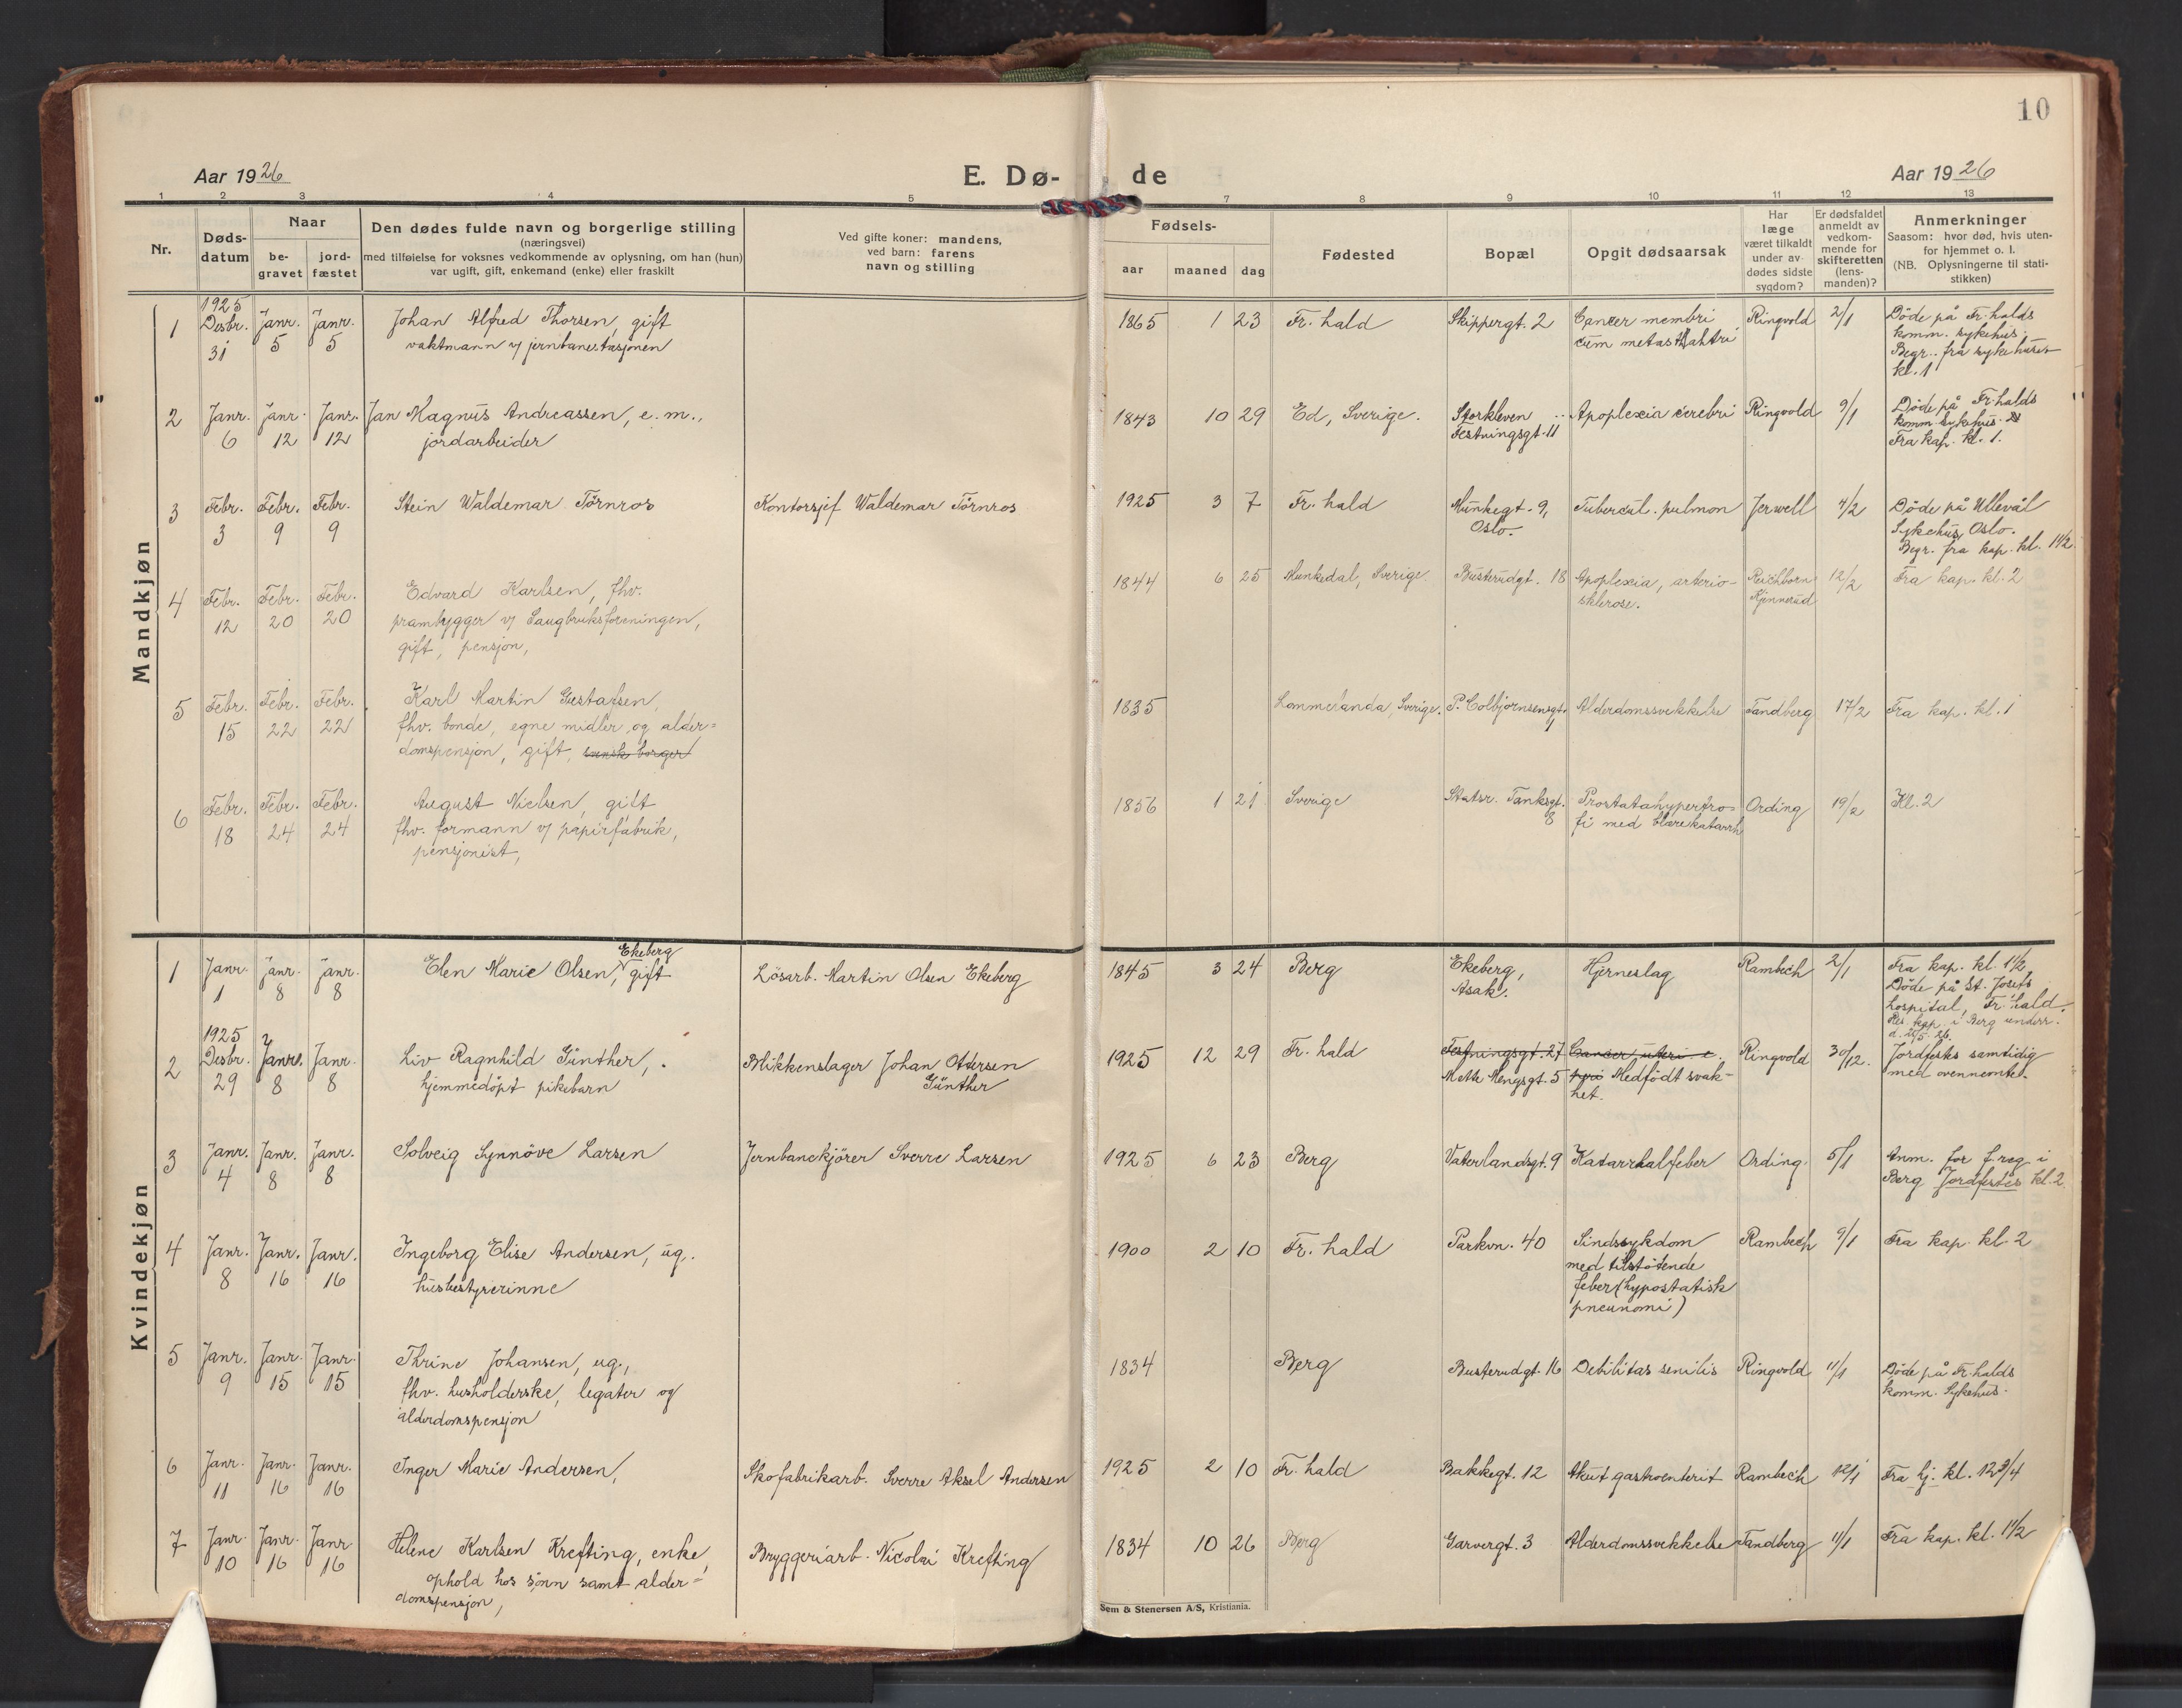 10
Aar 1926
E. Dø-
de
Aar 1926
1 2 3 4 5 7 8 9 10 11 12 13
Nr.
Døds-
datum
Naar
be-
gravet
jord-
fæstet
Den dødes fulde navn og borgerlige stilling
(næringsvei)
med tilføielse for voksnes vedkommende av oplysning, om han (hun)
var ugift, gift, enkemand (enke) eller fraskilt
Ved gifte koner: mandens,
ved barn: farens
navn og stilling
Fødsels-
aar maaned dag
Fødested
Bopæl
Opgit dødsaarsak
Har
læge
været tilkaldt
under av-
dødes sidste
sygdom?
Er dødsfaldet
anmeldt av
vedkom-
mende for
skifteretten
(lens-
manden)?
Anmerkninger
Saasom: hvor død, hvis uten-
for hjemmet o. l.
(NB. Oplysningerne til stati-
stikken)
Mandkjøn
1
1925
Desbr.
31
Janr.
5
Janr.
5
Johan Alfred Thorsen, gift
vaktmann v/ jernbanestasjonen
1865 1 23
Fr. hald
Skippergt. 2
Cancer membri
cum metas
Ringvold
2/1
Döde på Fr. halds
komm. sykehus.
Begr. fra sykehuset
kl. 1
2
Janr.
6
Janr.
12
Janr.
12
Jan Magnus Andreassen, e. m.,
jordarbeider
1843 10 29
Ed, Sverige.
Storkleven
Festningsgt. 11
Apoplexia cerebri
Ringvold
9/1
Döde på Fr. halds
komm. sykehus.
Fra kap. kl. 1.
3
Febr.
3
Febr.
9
Febr.
9
Stein Waldemar Törnros
Kontorsjef Waldemar Törnros
1925 3 7
Fr. hald
Munkegt. 9,
Oslo.
Tubercul. pulmon
Jerwell
4/2
Döde på Ullevål
Sykehus, Oslo.
Begr. fra kap. kl. 1 1/2
4
Febr.
12
Febr.
20
Febr.
20
Edvard Karlsen, fhv.
prambygger v/ Saugbruksforeningen,
gift, pensjon,
1844 6 25
Munkedal, Sverige
Busterudgt. 18
Apoplexia, arterio-
sklerose.
Reichborn
Kjennerud
12/2
Fra kap. kl. 2
5
Febr.
15
Febr.
22
Febr.
22
Karl Martin Gustafsen,
fhv. bonde, egne midler og alder=
domspensjon, gift, svensk borger
1835
Lommelanda, Sverige.
P. Colbjørnsensgt.
Alderdomssvekkelse
Tandberg
17/2
Fra kap. kl. 1
6
Febr.
18
Febr.
24
Febr.
24
August Nielsen, gift
fhv. formann v/ papirfabrik,
pensjonist,
1856 1 21
Sverige
Statsr. Tanksgt.
8
Prostatahypertro-
fi med blærekatarrh
Ording
19/2
Kl. 2
Kvindekjøn
1
Janr.
1
Janr.
8
Janr.
8
Ekeberg
Elen Marie Olsen, gift
Lösarb. Martin Olsen Ekeberg
1845 3 24
Berg
Ekeberg,
Asak.
Hjerneslag
Rambech
2/1
Fra kap. kl. 1 1/2
Döde på St. Josefs
hospital, Fr. hald.
Res. kap. i Berg underr.
d. 20/5. 26.
2
1925
Desbr.
29
Janr.
8
Janr.
8
Liv Ragnhild Günther,
hjemmedöpt pikebarn
Blikkenslager Johan Ottersen
Günther
1925 12 29
Fr. hald
Festningsgt. 27
Mette Mengsgt. 5
Cancer uteri c.
Medfödt svak-
het.
Ringvold
30/12.
Jordfestes samtidig
med ovennevnte.
3
Janr.
4
Janr.
8
Janr.
8
Solveig Synnöve Larsen
Jernbanekjörer Sverre Larsen
1925 6 23
Berg
Vaterlandsgt. 9
Katarrhalfeber
Ording
5/1
Anm. for f. reg i
Berg Jordfestes kl. 2
4
Janr.
8
Janr.
16
Janr.
16
Ingeborg Elise Andersen, ug.
husbestyrerinne
1900 2 10
Fr. hald
Parkvn. 40
Sindssykdom
med tilstötende
feber (hypostatisk
pneunomi)
Rambech
9/1
Fra kap. kl. 2
5
Janr.
9
Janr.
15
Janr.
15
Thrine Johansen, ug.,
fhv. husholderske, legater og
alderdomspensjon
1834
Berg
Busterudgt. 16
Debilitas senilis
Ringvold
11/1
Döde på Fr. halds
komm. Sykehus.
6
Janr.
11
Janr.
16
Janr.
16
Inger Marie Andersen,
Skofabrikarb. Sverre Aksel Andersen
1925 2 10
Fr. hald
Bakkegt. 12
Akut gastroenterit
Rambech
12/1
Fra hj. kl. 12 3/4
7
Janr.
10
Janr.
16
Janr.
16
Helene Karlsen Krefting, enke,
ophold hos sönn samt alder=
domspensjon,
Bryggeriarb. Nicolai Krefting
1834 10 26
Berg
Garvergt. 3
Alderdomssvekkelse
Tandberg
11/1
Fra kap. kl. 1 1/2
Sem & Stenersen A/S, Kristiania.